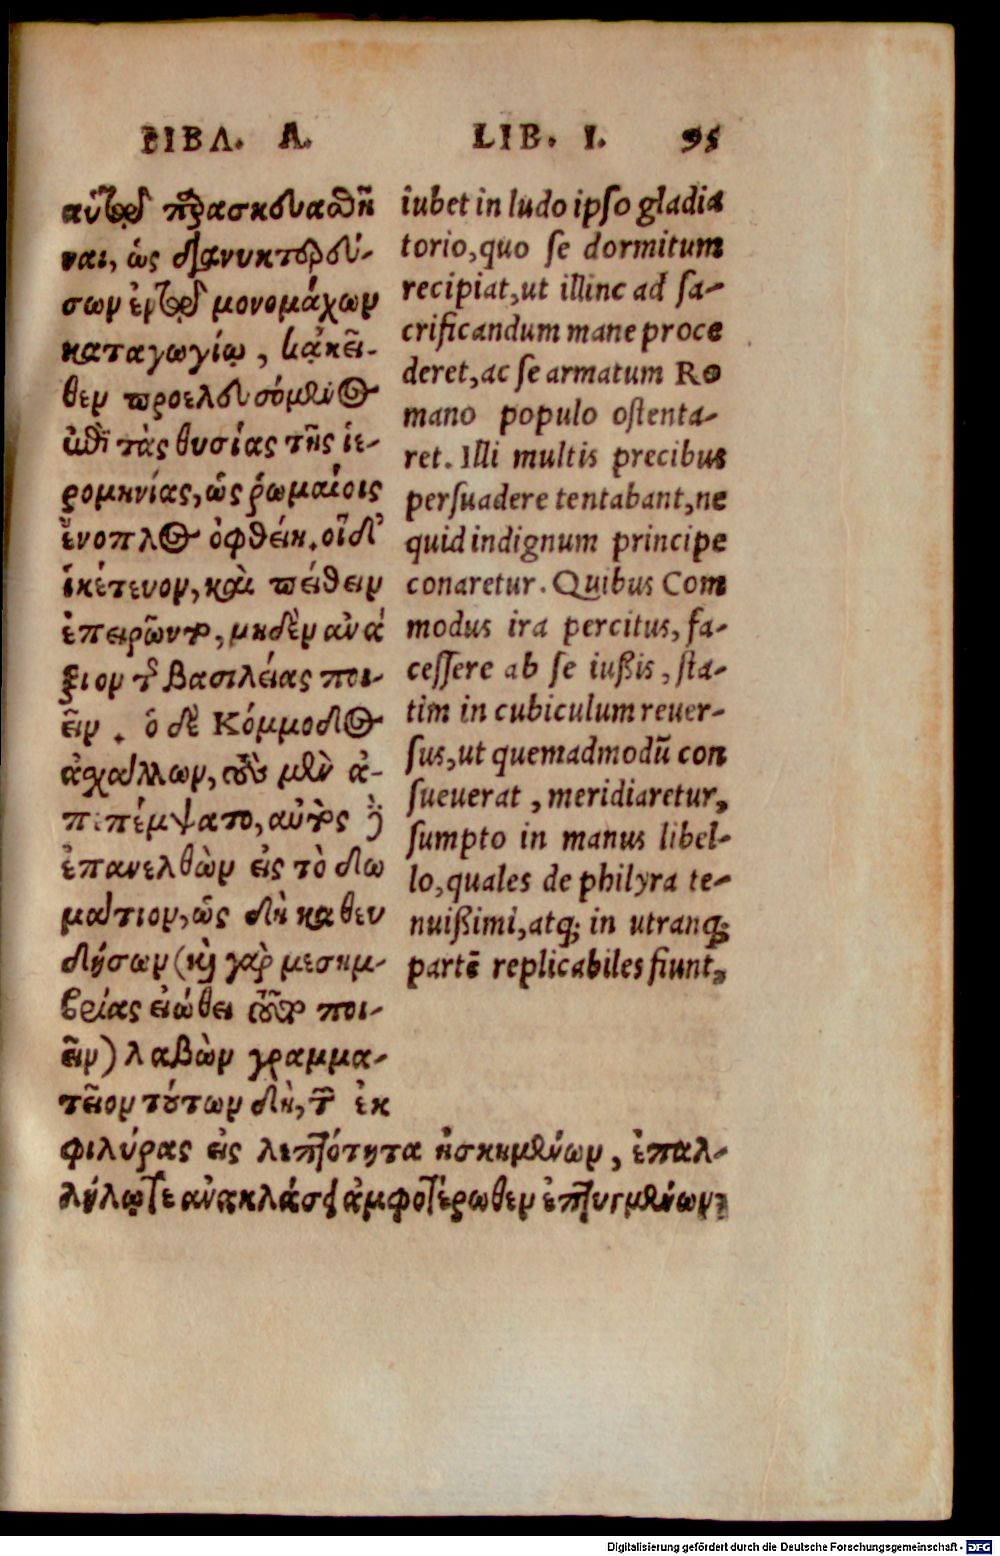 ΒΙΒΛ. Α.
αὐτοῦ παρασκευασθῆ
ναι, ὡς διανυκτερεύ-
σων ἐν τῷ μονομάχων
καταγωγίῳ, κἀκεῖ-
θεν προελευσόμενος
ἐπὶ τὰς θυσίας τῆς ἱε-
ρομηνίας, ὡς ῥωμαίοις
ἔνοπλος ὀφθείη. οἱ δ'
ἱκέτευον, καὶ πείθειν
ἐπειρῶντο, μηδὲν ἀνά
ξιον τῆς βασιλείας ποι-
εῖν. ὁ δὲ Κόμμοδος
ἀσχάλλων, τοὺς μὲν ἀ-
πεπέμψατο, αὐτὸς δὲ
ἐπανελθὼν εἰς τὸ δω
μάτιον, ὡς δὴ καθευ
δήσων (καὶ γὰρ μεσημ-
βρίας εἰώθει τοῦτο ποι-
εῖν) λαβὼν γραμμα-
τεῖον τούτων δὴ, τῶν ἐκ
φιλύρας εἰς λεπτότητα ἠσκημένων, ἐπαλ-
λήλῳ τε ἀνακλάσει ἀμφοτέρωθεν ἐπτυγμένων,
LIB. I. 95
iubet in ludo ipso gladia
torio, quo se dormitum
recipiat, ut illinc ad sa-
crificandum mane proce
deret, ac se armatum Ro
mano populo ostenta-
ret. Illi multis precibus
persuadere tentabant, ne
quid indignum principe
conaretur. Quibus Com
modus ira percitus, fa-
cessere ab se iußis, sta-
tim in cubiculum reuer-
sus, ut quemadmodũ con
sueuerat, meridiaretur,
sumpto in manus libel-
lo, quales de philyra te-
nuißimi, atq; in utranq;
partẽ replicabiles fiunt,
Digitalisierung gefördert durch die Deutsche Forschungsgemeinschaft - DFG